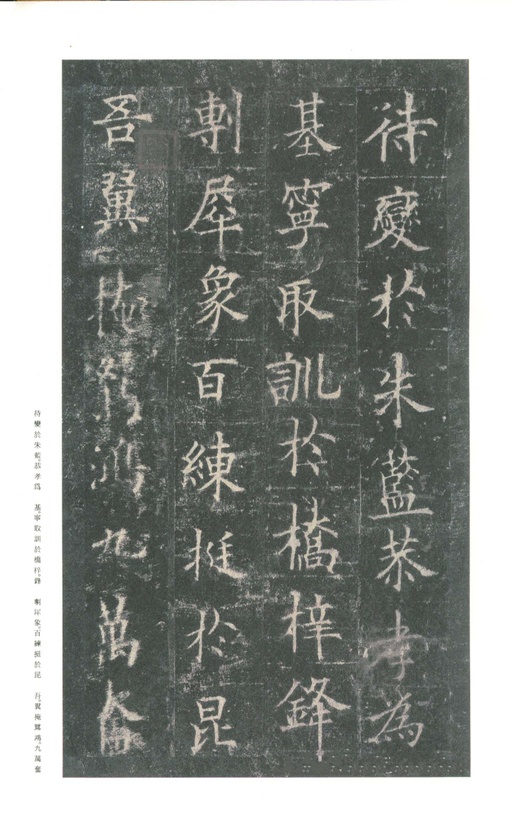 待變於朱藍恭孝為
基寧取訓於橋梓鋒
剸犀象百練挺於昆
吾翼掩鴛鴻九萬奮
待變於朱藍。恭孝爲 基。寧取訓於橋梓。鋒 剸犀象。百練挺於昆 吾。翼掩鴛鴻。九萬奮